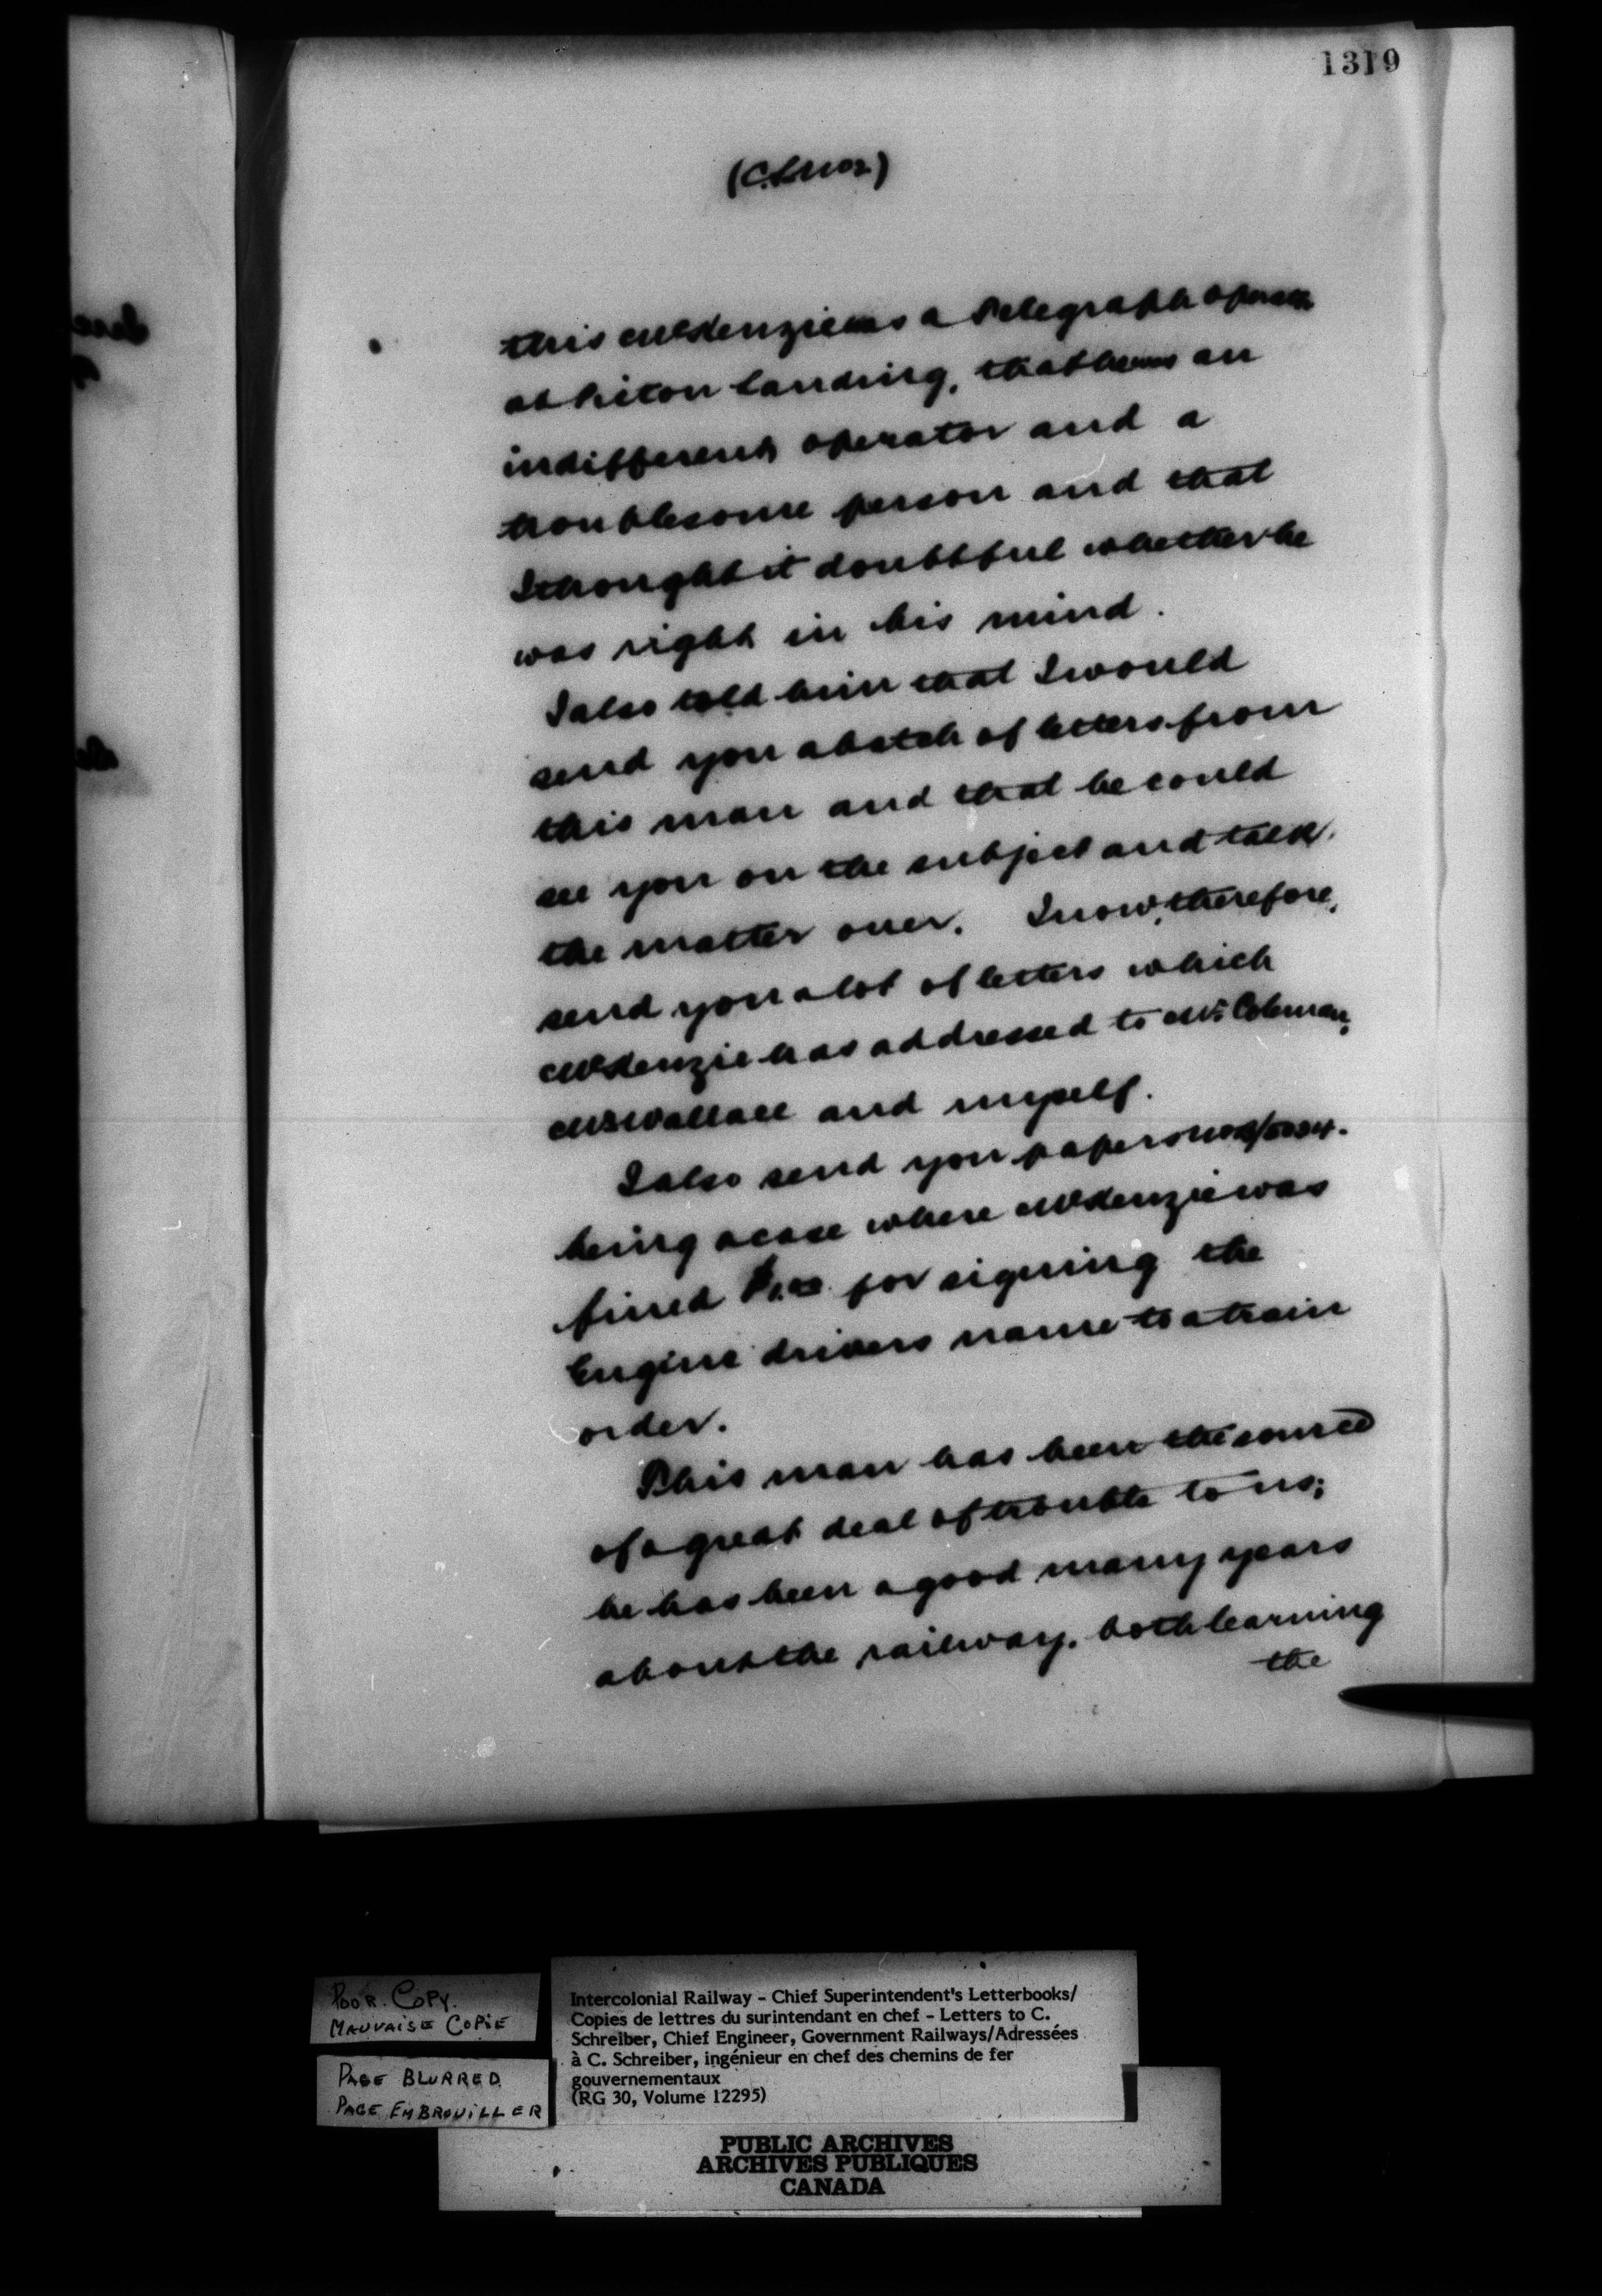 1319
this McKenzie was a Telegraph operator
at Pictou Landing, that he was an
indifferent operator and a
troublesome person and that
I thought it doubtful whether he
was right in his mind.
I also told him that I would
send you a batch of letters from
this man and that he could
see you on the subject and talk
the matter over. I now, therefore,
send you a lot of letters which
McKenzie has addressed to Mr. Coleman,
Mr Wallace and myself.
I also send you papers
being a case where McKenzie was
fined for signing the
Engine drivers name to a train
order.
This man has been the source
of a great deal of trouble to us;
he has been a good many years
about the railway, both learning
the
POOR COPY.
MAUVAISE COPIE
PAGE BLURRED
PAGE EMBROUILLER
Intercolonial Railway - Chief Superintendent's Letterbooks/
Copies de lettres du surintendant en chef - Letters to C.
Schreiber, Chief Engineer, Government Railways/Adressées
à C. Schreiber, ingénieur en chef des chemins de fer
gouvernementaux
(RG 30, Volume 12295)
PUBLIC ARCHIVES
ARCHIVES PUBLIQUES
CANADA